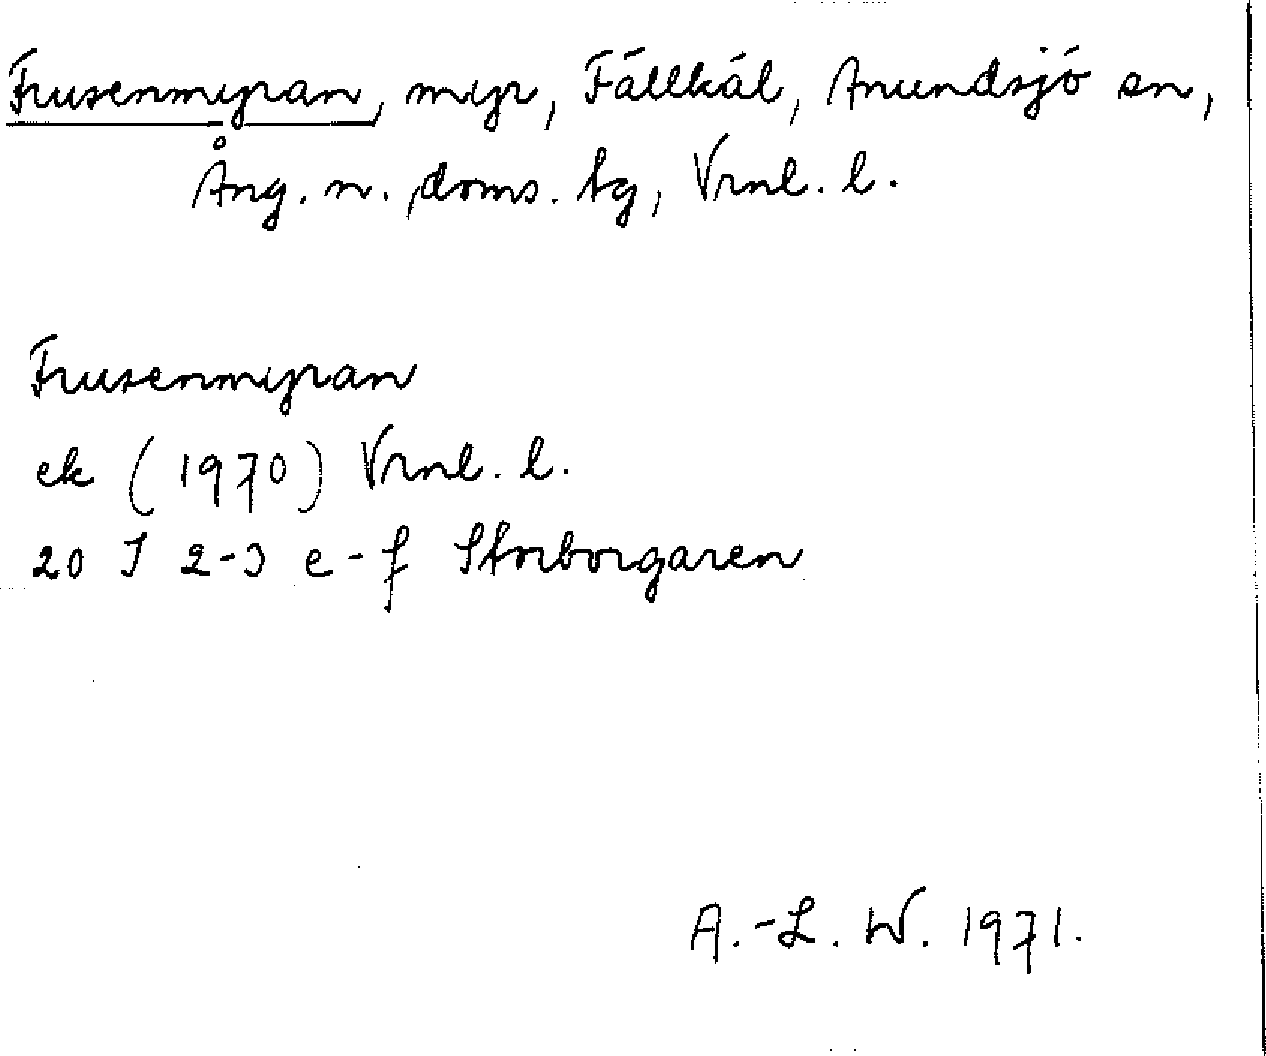 Frusenmyran, myr, Fällkål, Anundsjö sn,
Ång. n. doms. tg, Vrnl. l.
Frusenmyran
ek (1970) Vrnl. l.
20 I 2-3 e-f Storborgaren
A.-L. W. 1971.